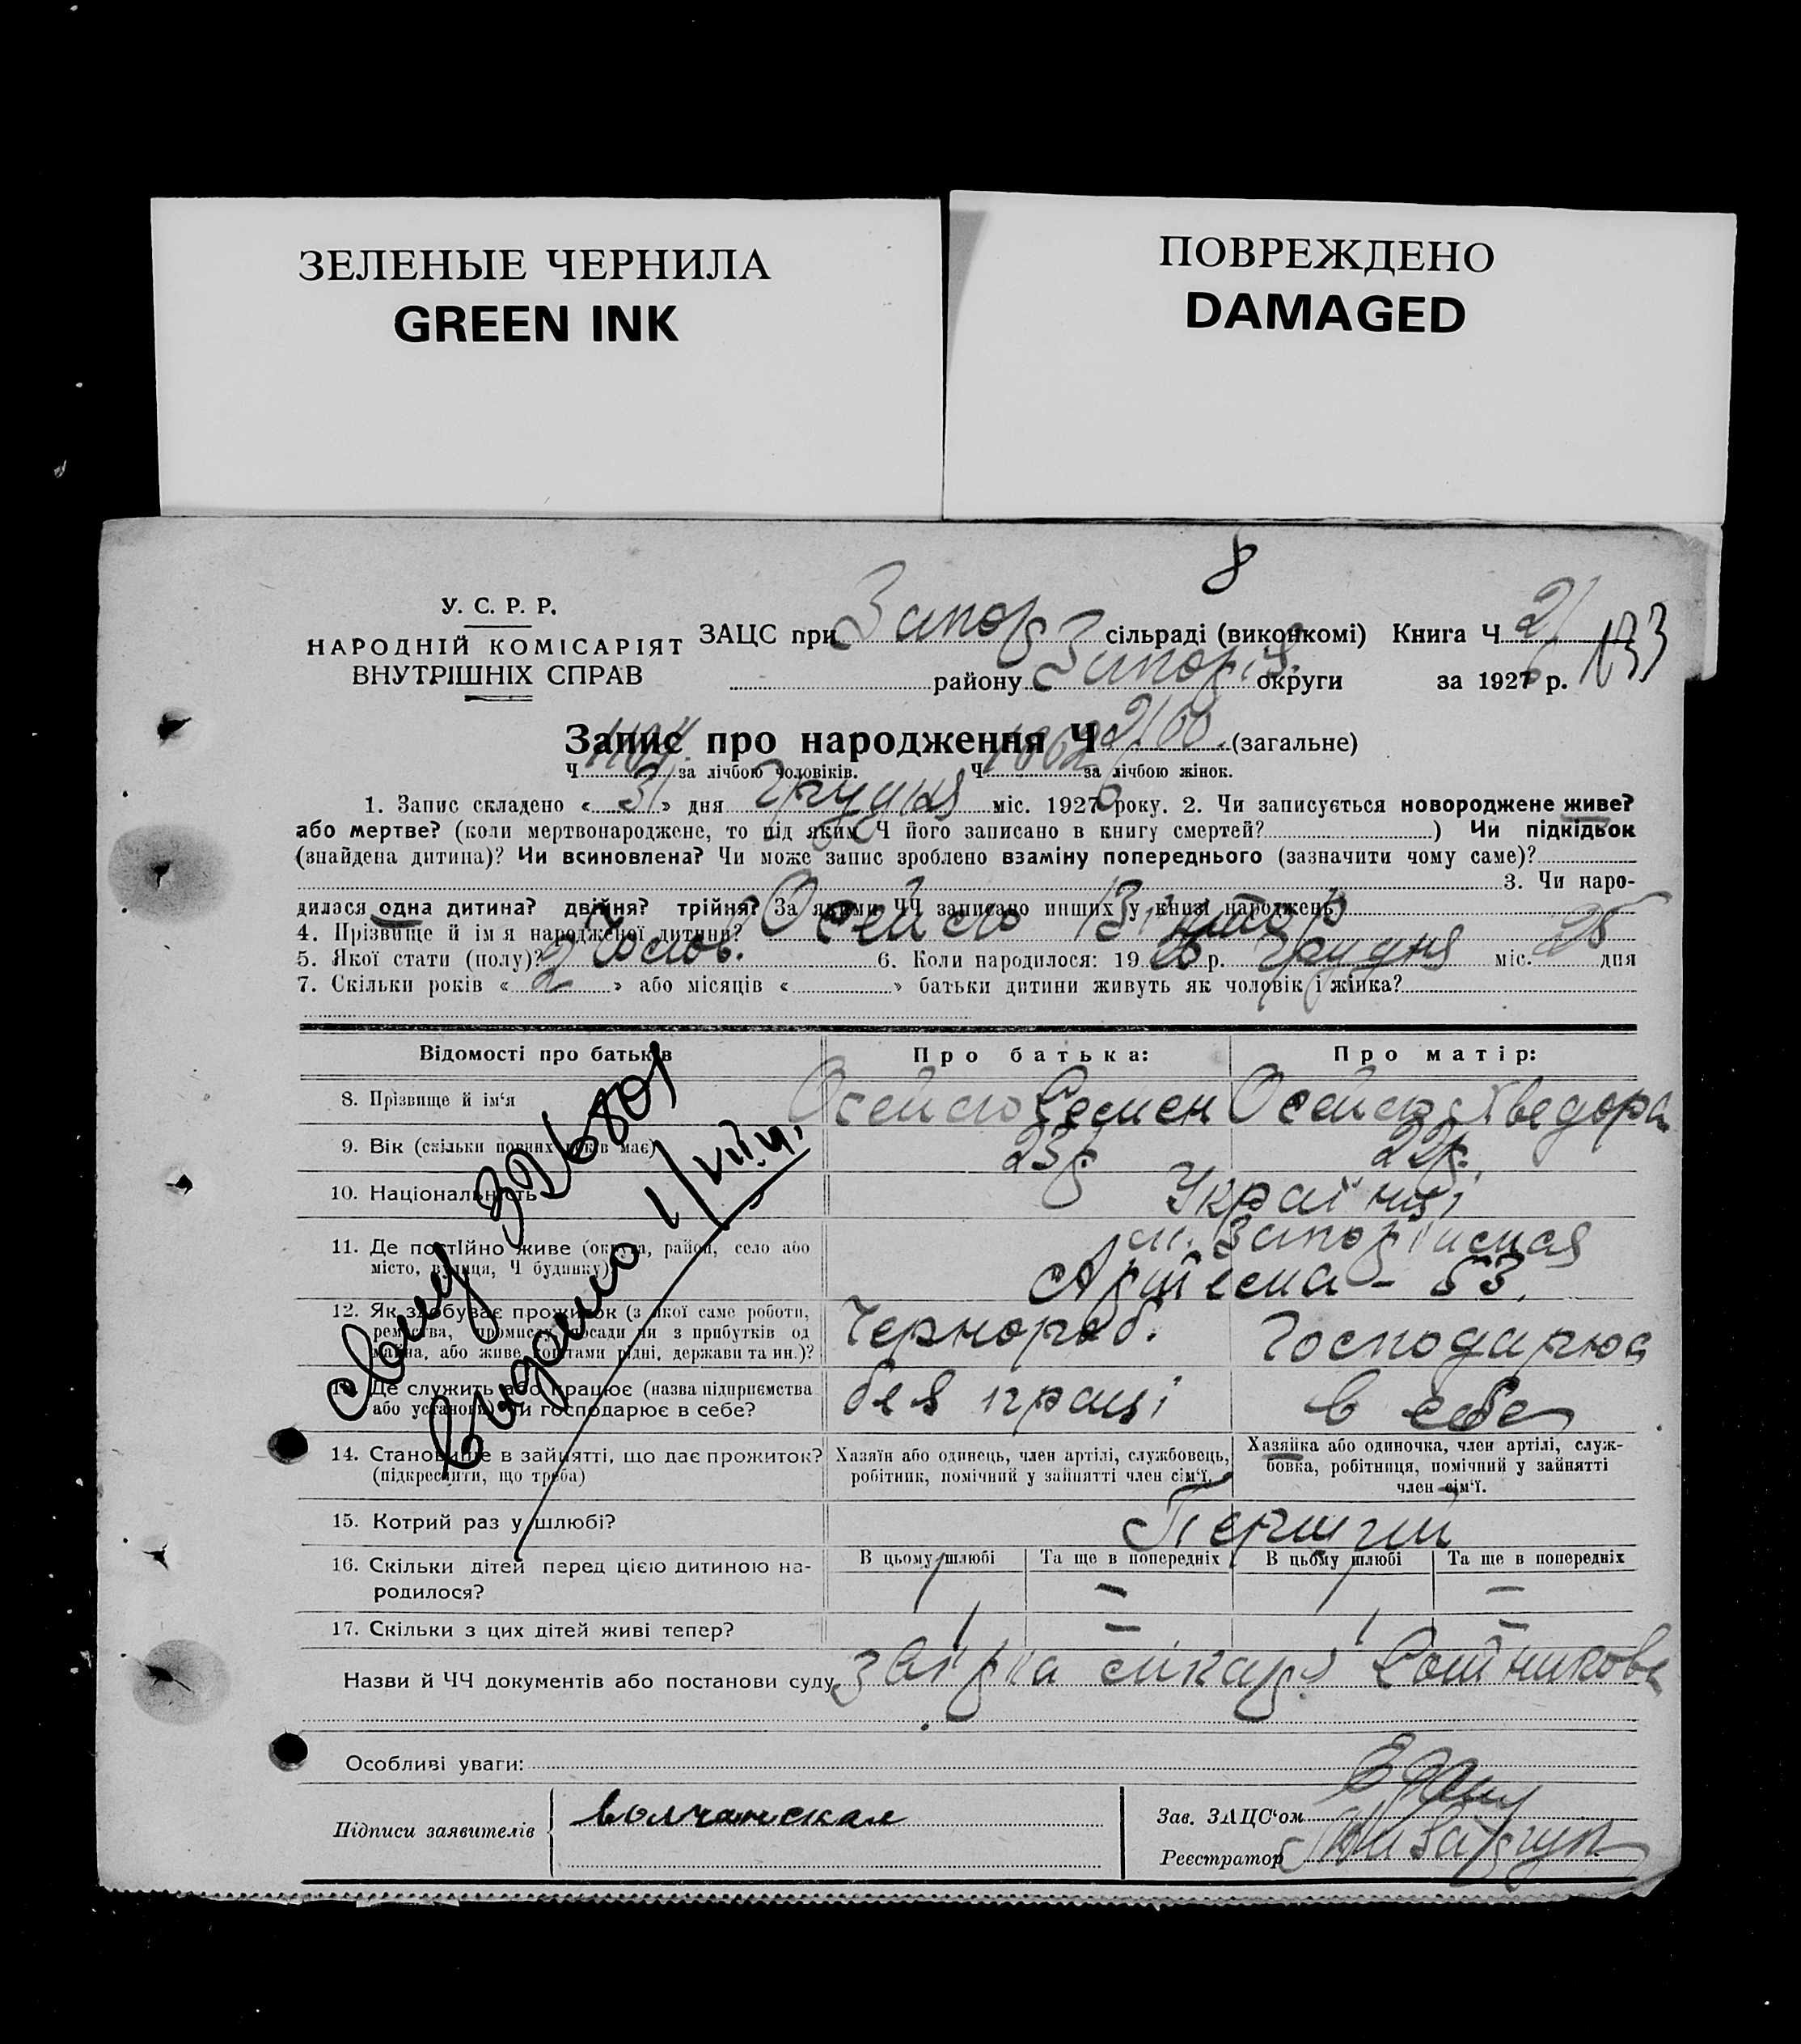 ЗЕЛЕНЫЕ ЧЕРНИЛА
GREEN INK
ПОВРЕЖДЕНО
DAMAGED
8
У. С. Р. Р.
НАРОДНІЙ КОМІСАРІЯТ
ВНУТРІШНІХ СПРАВ
ЗАЦС при Запор сільраді (виконкомі) Книга Ч 21
133
району Запоріз. округи за 1926 р.
Запис про народження Ч 2160. (загальне)
Ч за лічбою чоловіків. Ч за лічбою жінок.
1. Запис складено « 31 » дня Грудня міс. 1926 року. 2. Чи записується новороджене живе?
або мертве? (коли мертвонароджене, то під яким Ч його записано в книгу смертей? ) Чи підкідьок
(знайдена дитина)? Чи всиновлена? Чи може запис зроблено взаміну попереднього (зазначити чому саме)?
3. Чи наро-
дилася одна дитина? двійня? трійня? За якими ЧЧ записано инших у книзі народжень
4. Прізвище й ім я народженої дитини?
5. Якої стати (полу)? Чолов. 6. Коли народилося: 19 26 р. Грудня міс. 25 дня
7. Скільки років « 2 » або місяців « » батьки дитини живуть як чоловік і жінка?
Відомості про батьків
Про батька:
Про матір:
8. Прізвище й ім‘я
Семен
9. Вік (скільки повних років має)
23р
22р.
10. Національність
Українці
11. Де постійно живе (округа, район, село або
місто, вулиця, Ч будинку)
Артема – 53.
12. Як здобуває прожиток (з якої саме роботи,
ремества, промислу, посади чи з прибутків од
майна, або живе коштами рідні, держави та ин.)?
Чернороб.
Господарює
13. Де служить або працює (назва підприємства
або установи) чи господарює в себе?
без праці
в себе
14. Становище в зайнятті, що дає прожиток?
(підкреслити, що треба)
Хазяїн або одинець, член артілі, службовець,
робітник, помічний у зайнятті член сім‘ї.
Хазяйка або одиночка, член артілі, служ-
бовка, робітниця, помічний у зайнятті
член сім‘ї.
15. Котрий раз у шлюбі?
Перший
16. Скільки дітей перед цією дитиною на-
родилося?
В цьому шлюбі Та ще в попередніх В цьому шлюбі Та ще в попередніх
1 – 1 –
17. Скільки з цих дітей живі тепер?
1 – 1 –
Назви й ЧЧ документів або постанови суду
Особливі уваги:
Підписи заявителів
Волчанская
Зав. ЗАЦС‘ом
Реєстратор